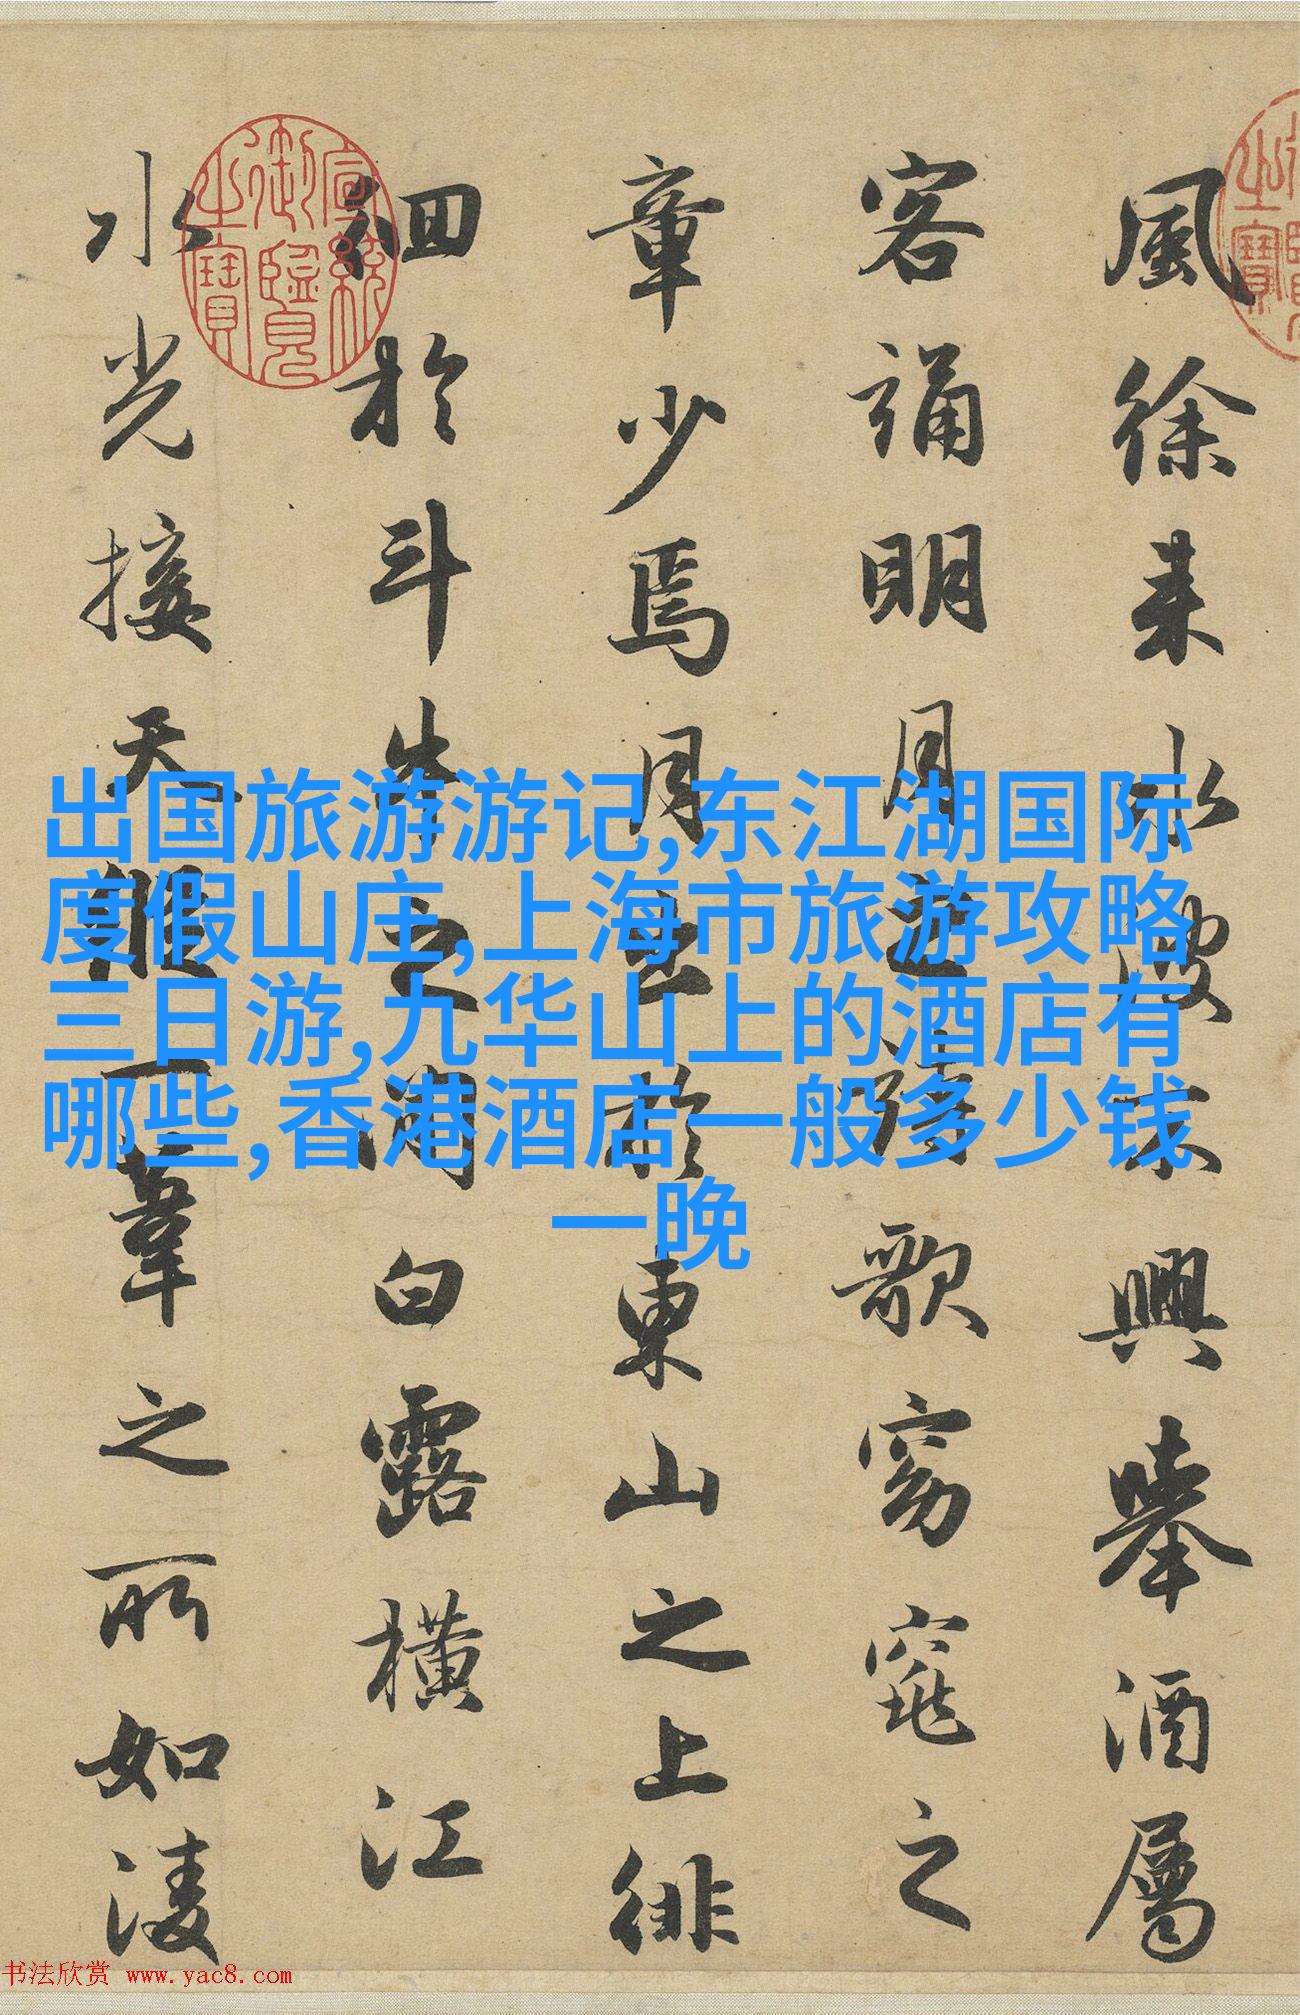 風徐来水波不興舉酒屬
客誦明月之詩歌窈窕之
章少焉月出於東山之上徘
徊於斗牛之間白露橫江
水光接天縱一葦之所如淩
宣統御覽之寶
出国旅游游记,东江湖国际
度假山庄,上海市旅游攻略
三日游,九华山上的酒店有
哪些,香港酒店一般多少钱
一晚
书法欣赏 www.yac8.com